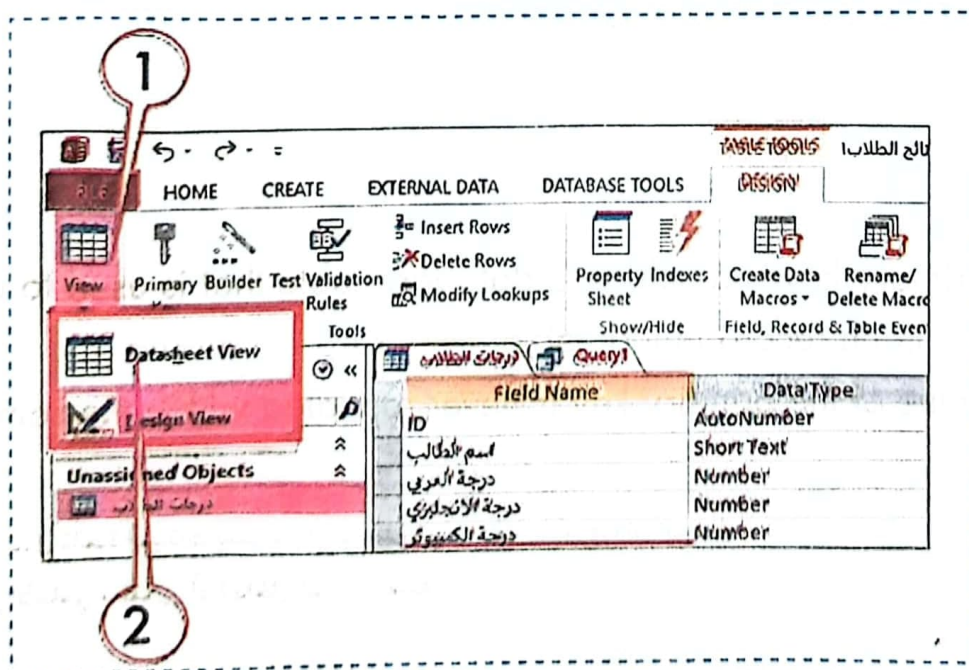 1
TABLE TOOLS
تائج الطلاب1
FILE
HOME
CREATE
EXTERNAL DATA
DATABASE TOOLS
DESIGN
View
Primary
Builder
Test Validation
Rules
Insert Rows
Delete Rows
Modify Lookups
Property
Sheet
Indexes
Create Data
Macros
Rename/
Delete Macro
Tools
Show/Hide
Field, Record & Table Even
Datasheet View
Design View
Unassigned Objects
درجات الطلاب
درجات الطلاب
Query1
Field Name
Data Type
ID
AutoNumber
اسم الطالب
Short Text
درجة العربي
Number
درجة الانجليزي
Number
درجة الكمبيوتر
Number
2